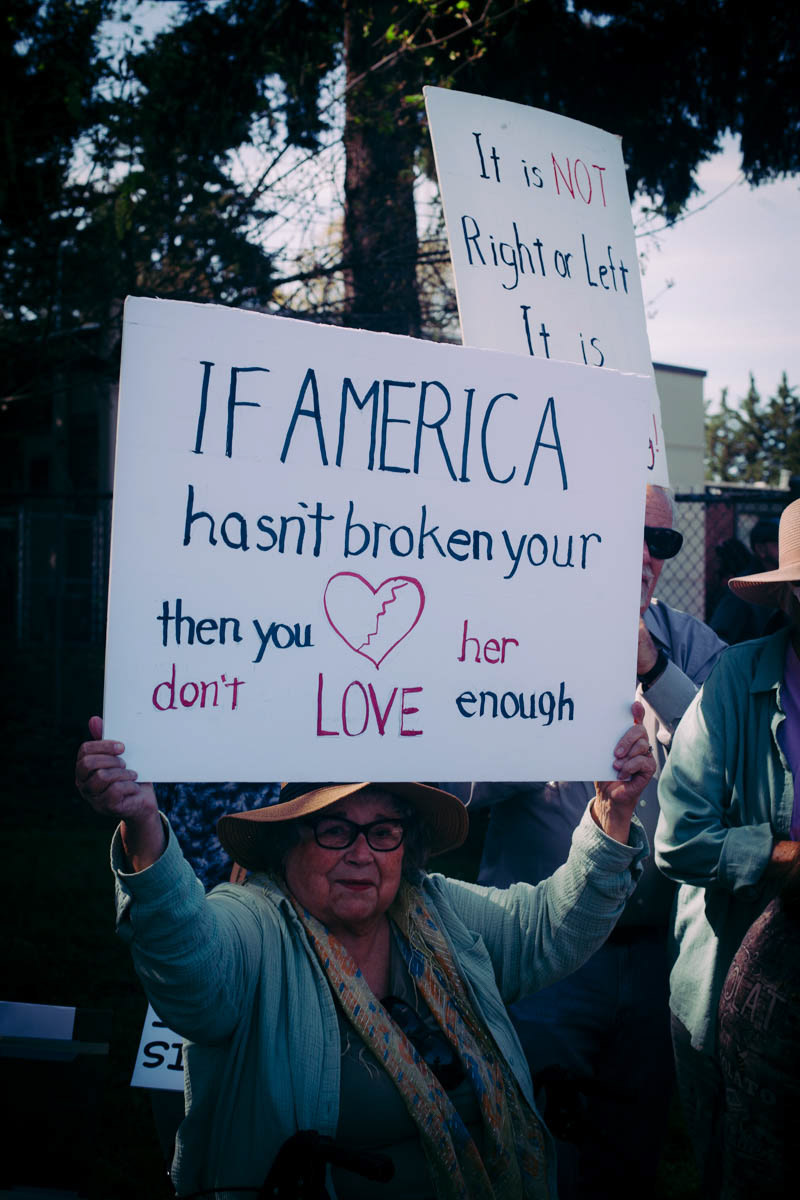 It is NOT
Right or Left
It is
IF AMERICA
hasn't broken your
then you her
don't LOVE enough
SI